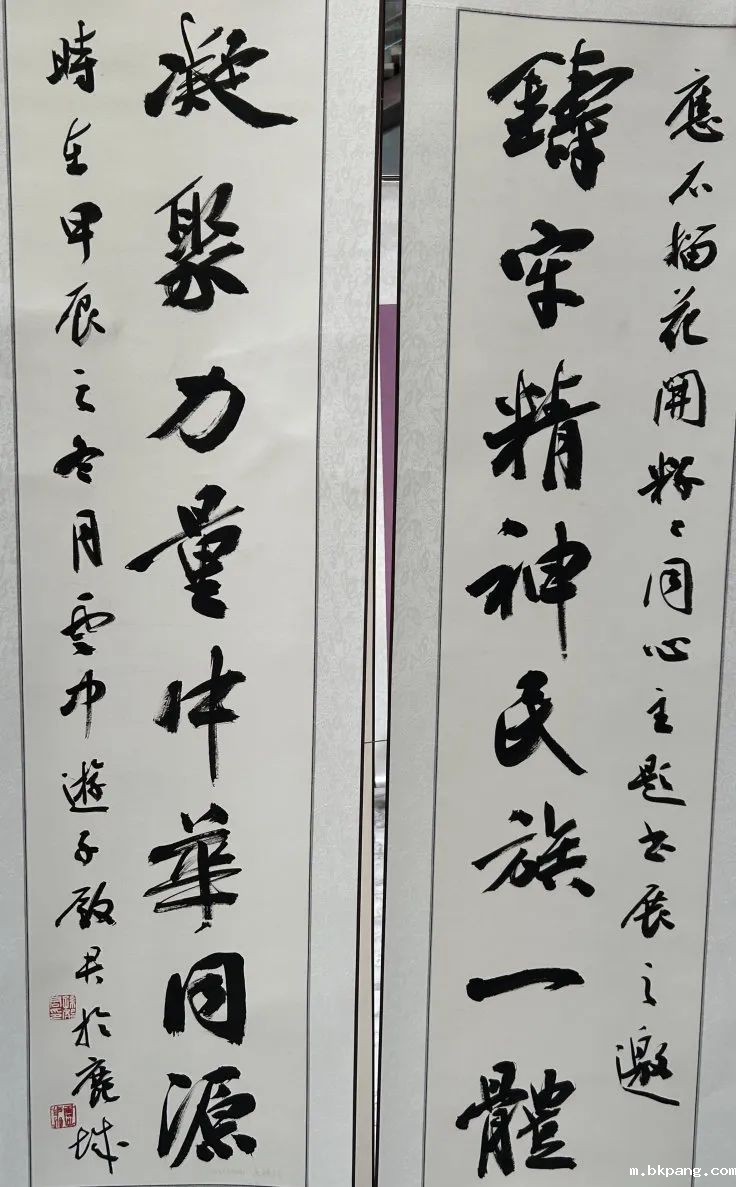 應石榴花開籽籽同心主題書展之邀
鑄牢精神民族一體
凝聚力量中華同源
時在甲辰之冬月雲中遊子啟君於鹿城
m.bkpang.com